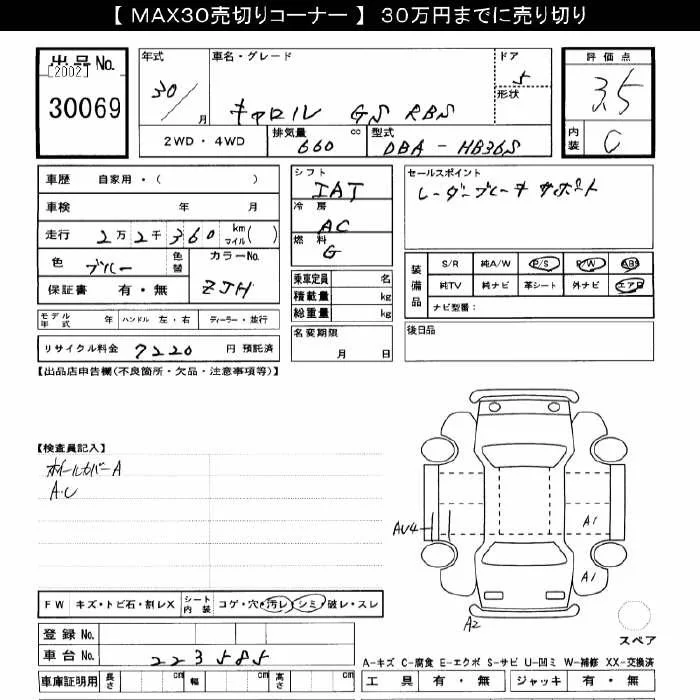 【 MAX30売切りコーナー 】 30万円までに売り切り
出品No.
[2002]
30069
年式
30/
月
車名・グレード
キャロル GS RBS
ドア
5
形状
2WD・4WD
排気量 660 cc
型式
DBA - HB36S
評価点
3.5
内装
C
車歴 自家用・( )
車検 年 月
走行 2万2千360 km マイル( )
色 ブルー
色替
カラーNo.
ZJH
保証書 有・無
シフト
IAT
冷房
AC
燃料
G
乗車定員 名
積載量 kg
総重量 kg
セールスポイント
レーダーブレーキサポート
装備品
S/R 純A/W P/S P/W ABS
純TV 純ナビ 革シート 外ナビ エアB
ナビ型番:
モデル年式 年 ハンドル 左・右 ディーラー・並行
リサイクル料金 7220 円 預託済
名変期限
月 日
後日品
【出品店申告欄(不良箇所・欠品・注意事項等)】
【検査員記入】
ホイールカバーA
A.U
AU4
A1
A1
A2
FW キズ・トビ石・割レX
シート内装 コゲ・穴・汚レ・シミ・破レ・スレ
スペア
登録No.
車台No. 223585
A-キズ C-腐食 E-エクボ S-サビ U-凹ミ W-補修 XX-交換済
車庫証明用 長さ cm 幅 cm 高さ cm
工具 有・無 ジャッキ 有・無